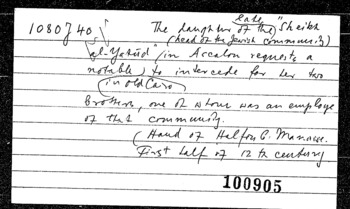 1080 J 40
The daughter of the late "Sheikh
(head of the Jewish community)
al-Yahūd" in Ascalon requests a
notable to intercede for her two
(in Old Cairo)
brothers, one of whom was an employe
of that community.
(Hand of Halfon b. Manasse.
First half of 12th century
100905